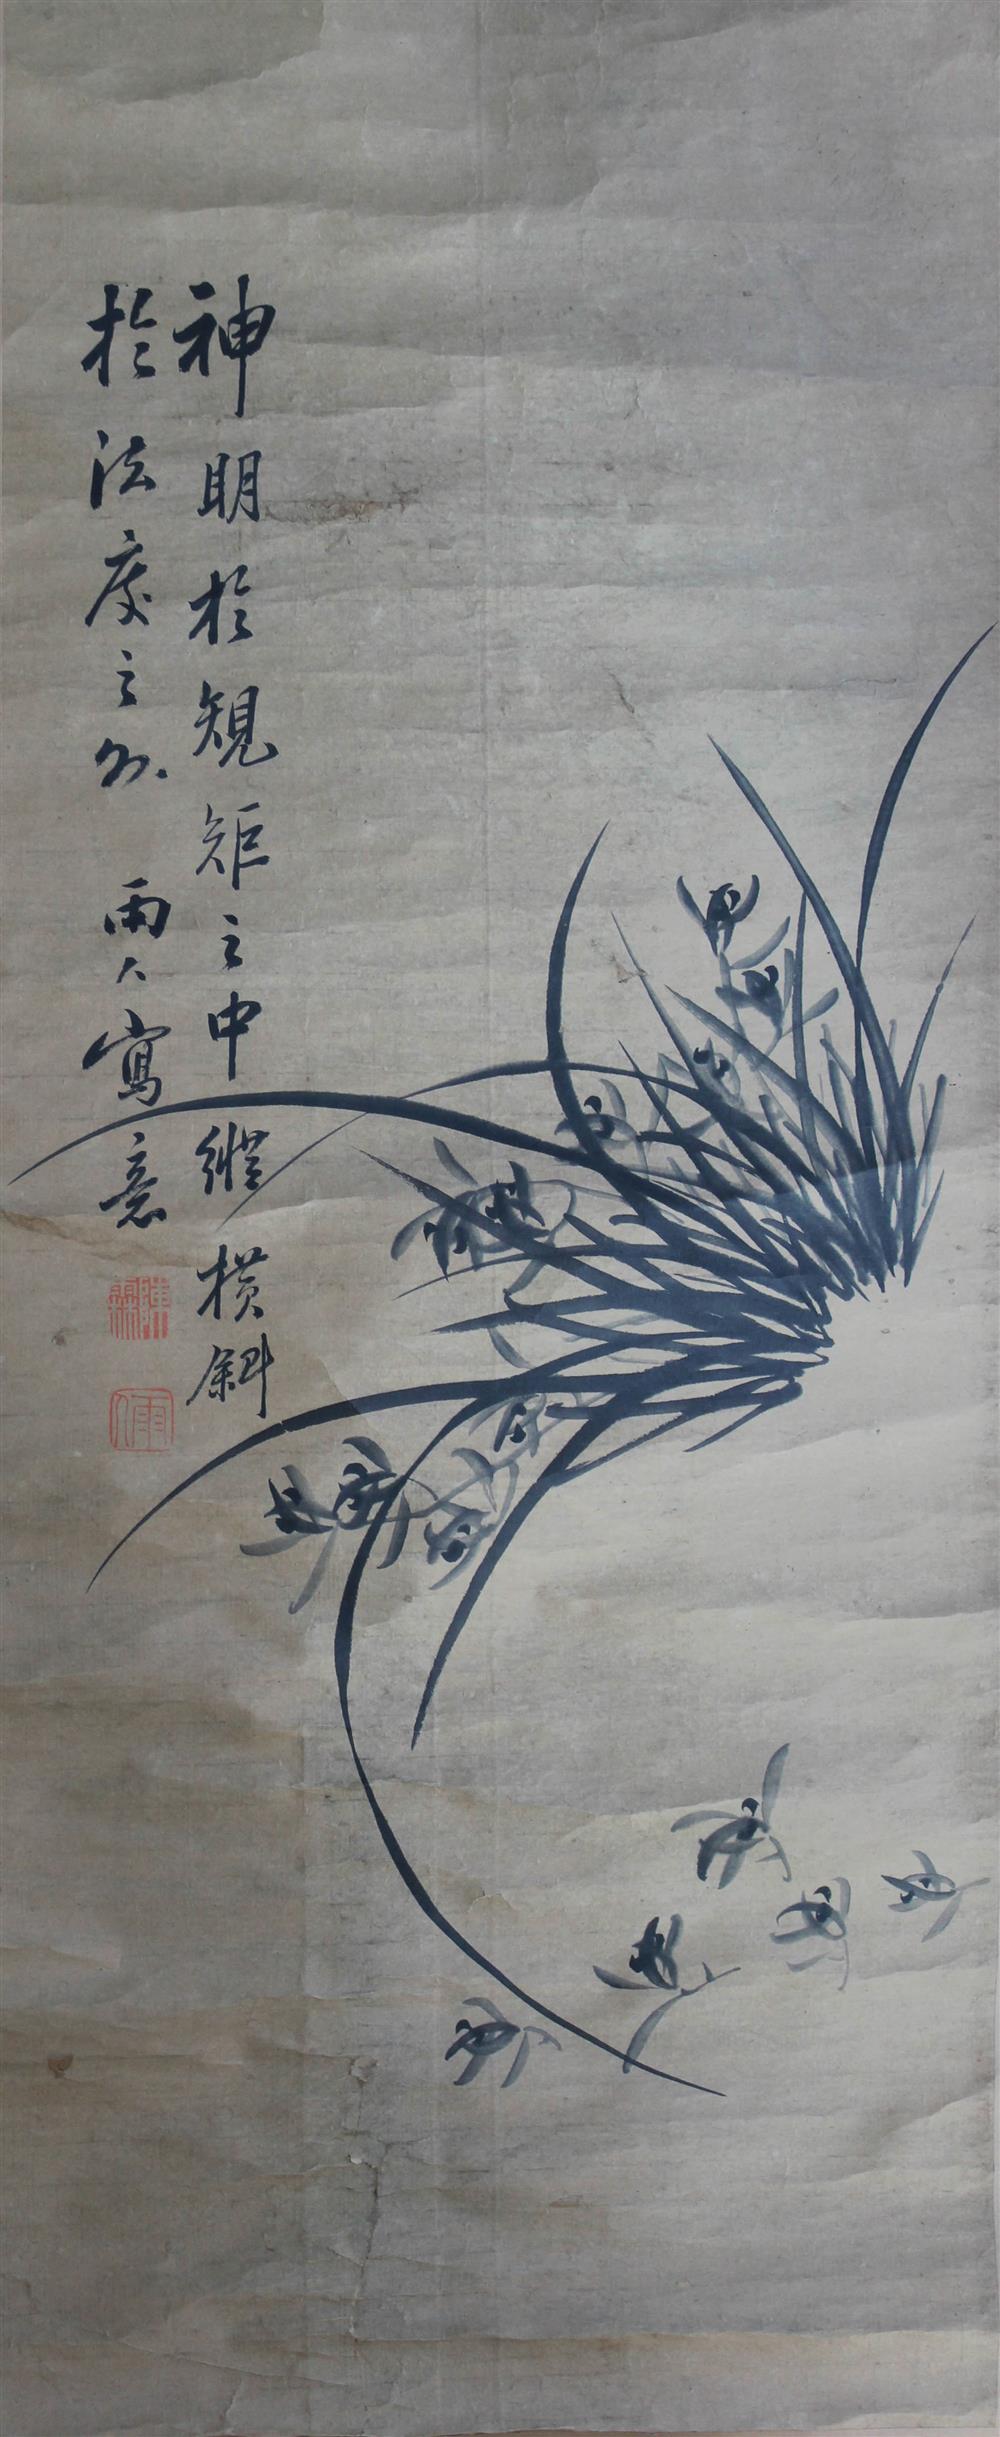 神明於規矩之中縱橫斜
於法度之外 雨人寫意
雨人